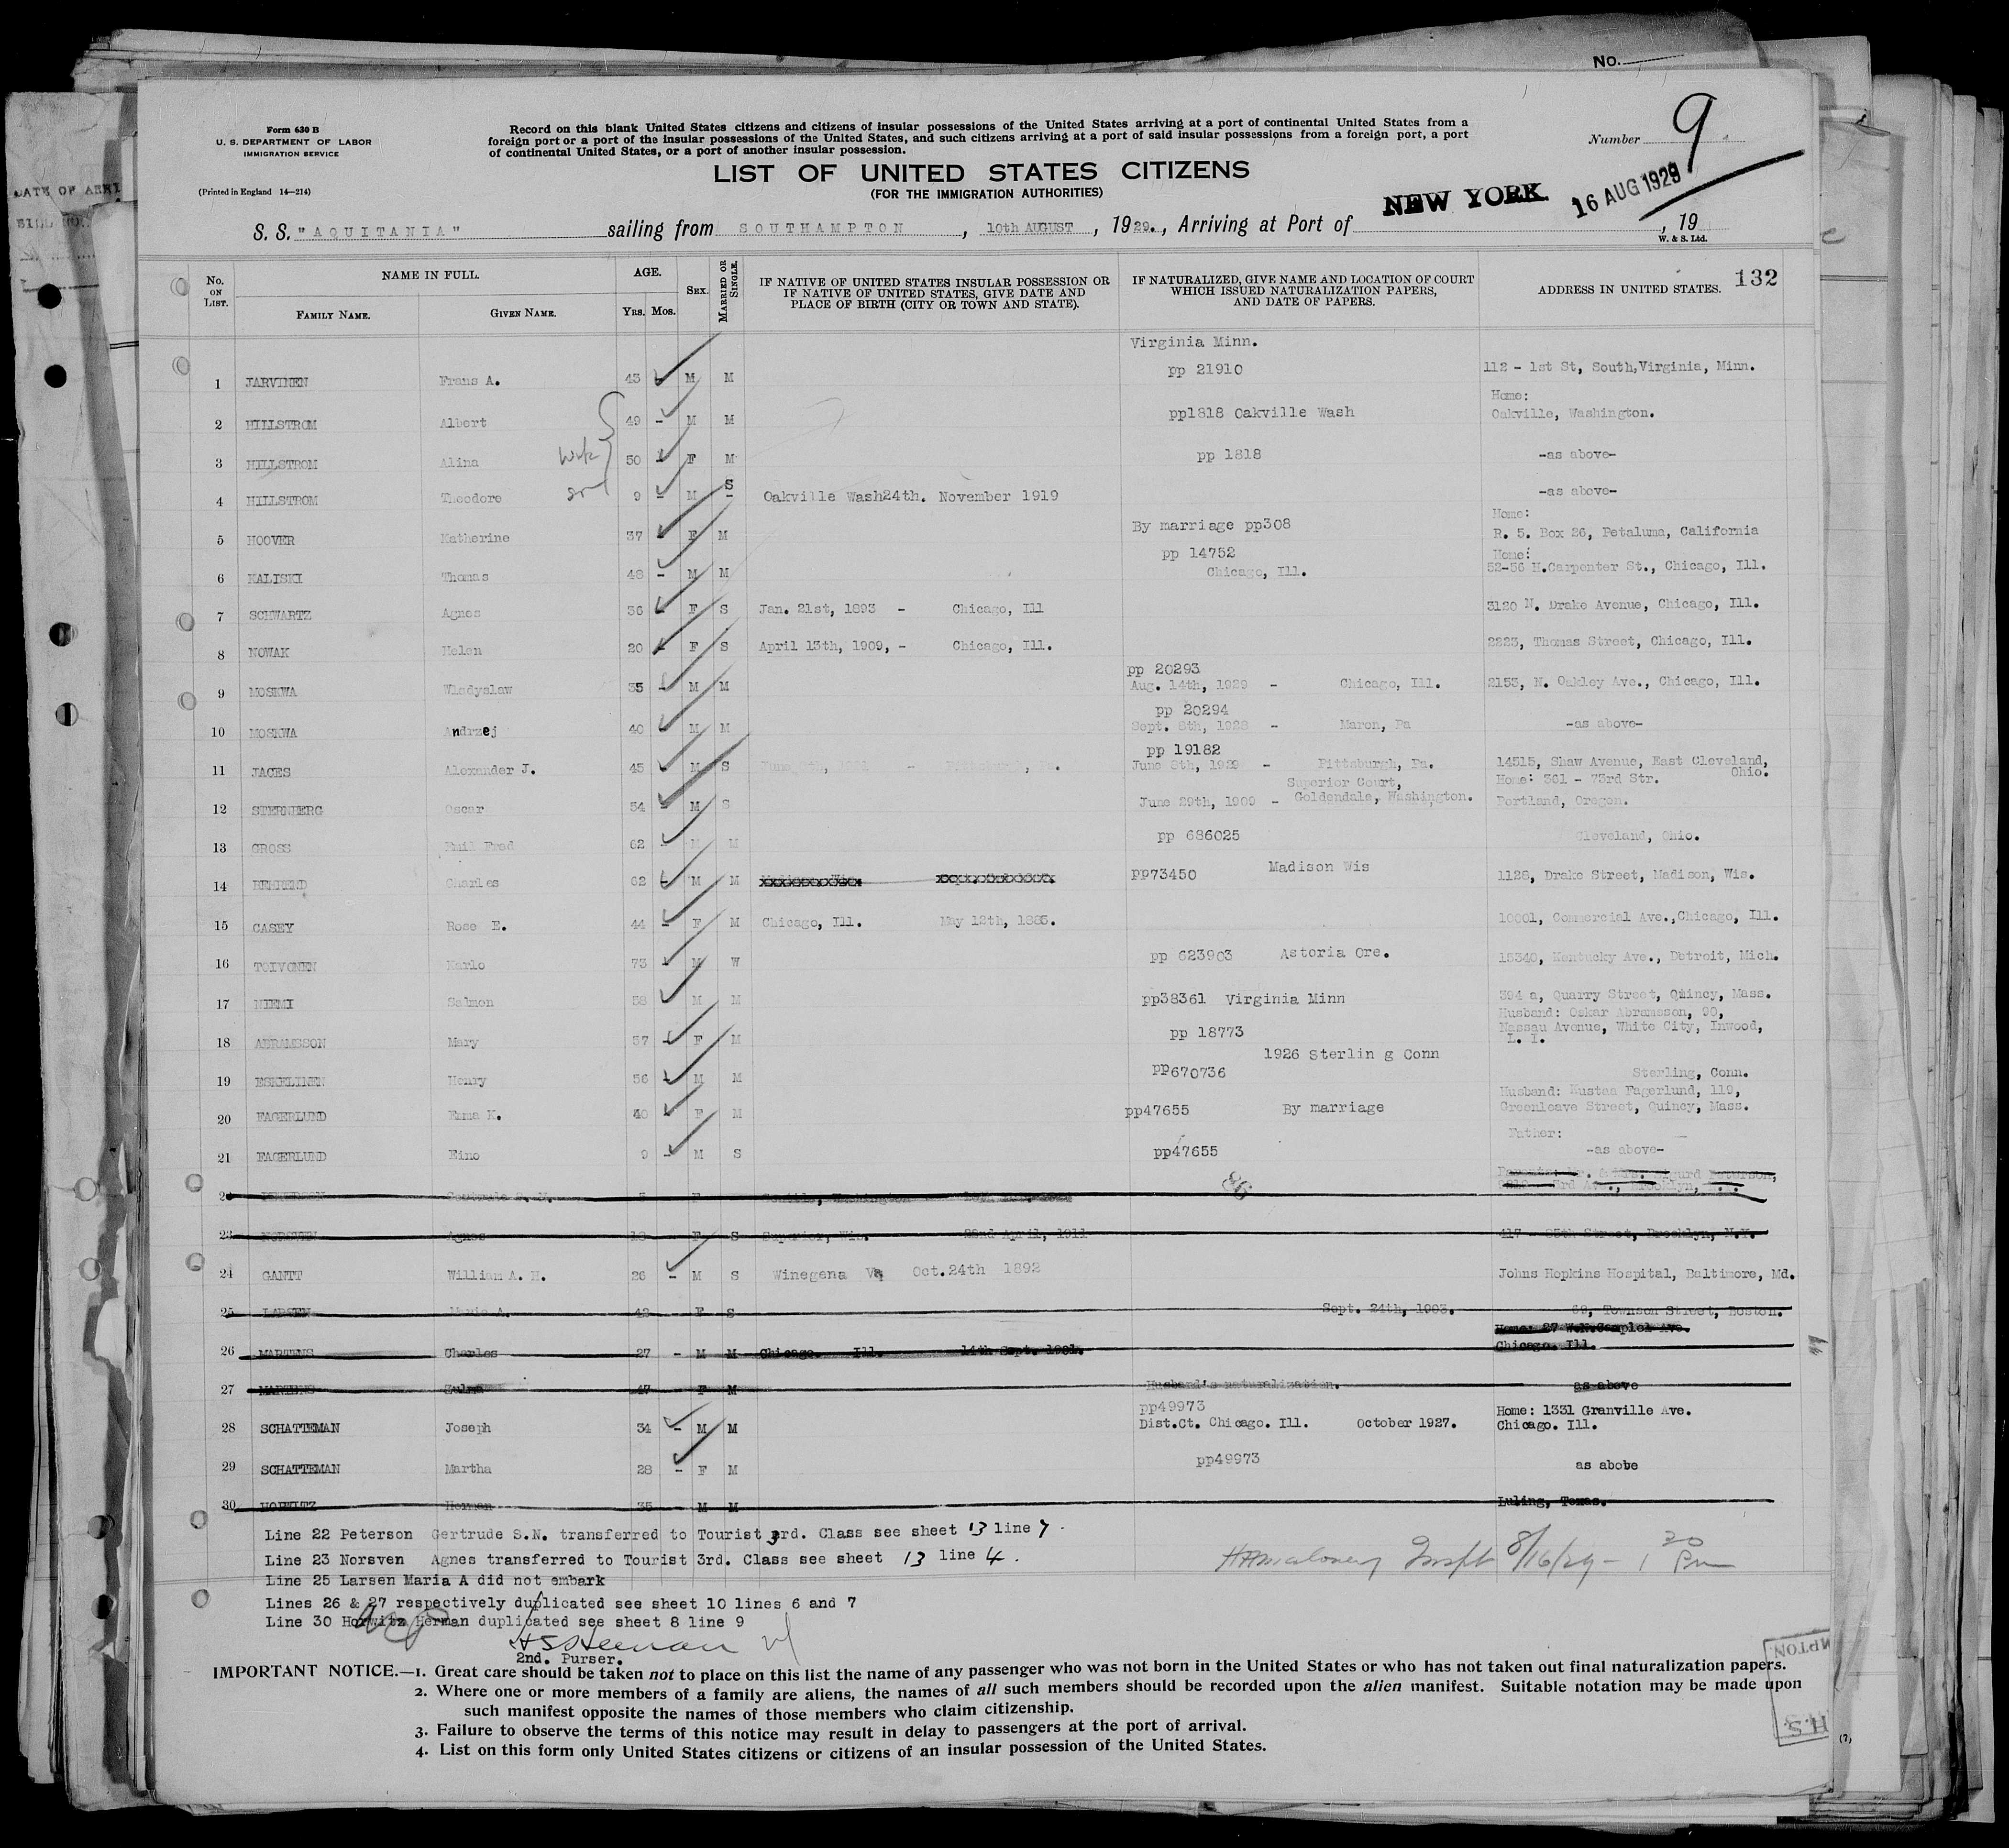 No.
DATE OF ARRI
Form 630 B
U. S. DEPARTMENT OF LABOR
IMMIGRATION SERVICE
(Printed in England 14—214)
Record on this blank United States citizens and citizens of insular possessions of the United States arriving at a port of continental United States from a
foreign port or a port of the insular possessions of the United States, and such citizens arriving at a port of said insular possessions from a foreign port, a port
of continental United States, or a port of another insular possession.
Number 9
LIST OF UNITED STATES CITIZENS
(FOR THE IMMIGRATION AUTHORITIES)
S. S. "AQUITANIA" sailing from SOUTHAMPTON, 10th AUGUST, 1929., Arriving at Port of NEW YORK 16 AUG 1929, 19
W. & S. Ltd.
No. ON LIST. NAME IN FULL. FAMILY NAME. GIVEN NAME. AGE. YRS. MOS. SEX. MARRIED OR SINGLE. IF NATIVE OF UNITED STATES INSULAR POSSESSION OR IF NATIVE OF UNITED STATES, GIVE DATE AND PLACE OF BIRTH (CITY OR TOWN AND STATE). IF NATURALIZED, GIVE NAME AND LOCATION OF COURT WHICH ISSUED NATURALIZATION PAPERS, AND DATE OF PAPERS. ADDRESS IN UNITED STATES. 132
Virginia Minn.
1 JARVINEN Frans A. 43 M M pp 21910 112 - 1st St, South,Virginia, Minn.
Home:
2 HILLSTROM Albert 49 - M M pp1818 Oakville Wash Oakville, Washington.
3 HILLSTROM Alina wife 50 - F M pp 1818 -as above-
4 HILLSTROM Theodore son 9 - M S Oakville Wash24th. November 1919 -as above-
Home:
5 HOOVER Katherine 37 - F M By marriage pp308 R. 5. Box 26, Petaluma, California
pp 14752 Home:
6 KALISKI Thomas 48 - M M Chicago, Ill. 52-56 N.Carpenter St., Chicago, Ill.
7 SCHWARTZ Agnes 36 - F S Jan. 21st, 1893 - Chicago, Ill 3120 N. Drake Avenue, Chicago, Ill.
8 NOWAK Helen 20 - F S April 13th, 1909, - Chicago, Ill. 2223, Thomas Street, Chicago, Ill.
pp 20293
9 MOSKWA Wladyslaw 35 - M M Aug. 14th, 1929 - Chicago, Ill. 2153, N. Oakley Ave., Chicago, Ill.
pp 20294
10 MOSKWA Andrzej 40 - M M Sept. 8th, 1928 - Maron, Pa -as above-
pp 19182
11 JACES Alexander J. 45 - M S June 8th, 1929 - Pittsburgh, Pa. 14515, Shaw Avenue, East Cleveland, Ohio.
Superior Court, Home: 361 - 73rd Str.
12 STERNBERG Oscar 54 - M S June 29th, 1909 - Goldendale, Washington. Portland, Oregon.
13 GROSS Emil Fred 62 - M M pp 686025 Cleveland, Ohio.
14 BEHREND Charles 62 - M M pp73450 Madison Wis 1128, Drake Street, Madison, Wis.
15 CASEY Rose E. 44 - F M Chicago, Ill. May 12th, 1885. 10001, Commercial Ave.,Chicago, Ill.
16 TOIVONEN Karlo 73 - M W pp 623903 Astoria Ore. 15340, Kentucky Ave., Detroit, Mich.
17 NIEMI Salmon 58 M M pp38361 Virginia Minn 394 a, Quarry Street, Quincy, Mass.
Husband: Oskar Abramsson, 90,
18 ABRAMSSON Mary 37 - F M pp 18773 Nassau Avenue, White City, Inwood,
L. I.
1926 Sterlin g Conn
19 ESKELINEN Henry 56 - M M pp670736 Sterling, Conn.
Husband: Kustaa Fagerlund, 119,
20 FAGERLUND Emma K. 40 - F M pp47655 By marriage Greenleave Street, Quincy, Mass.
Father:
21 FAGERLUND Eino 9 - M S pp47655 -as above-
Peterson,
Seattle, Washington
23 NORSVEN Agnes 18 F S Superior, Wis. 22nd April, 1911 417 - 85th Street, Brooklyn, N.Y.
24 GANTT William A. H. 26 - M S Winegena Va Oct.24th 1892 Johns Hopkins Hospital, Baltimore, Md.
25 LARSEN Maria A. 42 F S Sept. 24th, 1903. 68, Townson Street, Boston.
Home: 27 W.N.Complel Ave.
26 MARTENS Charles 27 - M M Chicago. Ill. 14th Sept. 1901. Chicago. Ill.
27 MARTENS Zulma 47 F M Husband's naturalization. as above
pp49973 Home: 1331 Granville Ave.
28 SCHATTEMAN Joseph 34 - M M Dist.Ct. Chicago. Ill. October 1927. Chicago. Ill.
29 SCHATTEMAN Martha 28 - F M pp49973 as above
30 HORWITZ Herman 35 M M Luling, Texas.
Line 22 Peterson Gertrude S.N. transferred to Tourist 3rd. Class see sheet 13 line 7.
Line 23 Norsven Agnes transferred to Tourist 3rd. Class see sheet 13 line 4.
Line 25 Larsen Maria A did not embark
Lines 26 & 27 respectively duplicated see sheet 10 lines 6 and 7
Line 30 Horwitz Herman duplicated see sheet 8 line 9
Inspt 8/16/29 - 1 30 Pm
2nd. Purser.
IMPORTANT NOTICE.—1. Great care should be taken not to place on this list the name of any passenger who was not born in the United States or who has not taken out final naturalization papers.
2. Where one or more members of a family are aliens, the names of all such members should be recorded upon the alien manifest. Suitable notation may be made upon
such manifest opposite the names of those members who claim citizenship.
3. Failure to observe the terms of this notice may result in delay to passengers at the port of arrival.
4. List on this form only United States citizens or citizens of an insular possession of the United States.
(7)